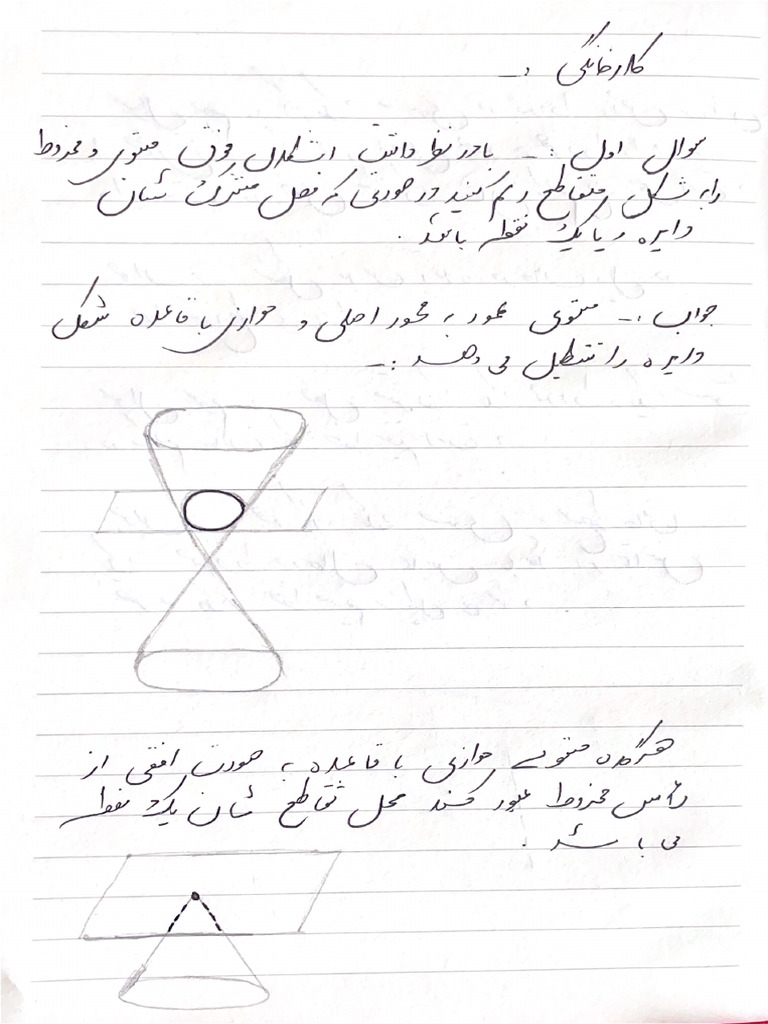 کارخانگی :-
سوال اول :- با در نظر داشت اشکال فوق مستوی و مخروط
را به شکل متقاطع رسم کنید در صورتی که فصل مشترک شان
دایره و یا یک نقطه باشد.
جواب :- مستوی عمود به محور اصلی و موازی با قاعده شکل
دایره را تشکیل می دهد :-
هرگاه مستوی موازی با قاعده به صورت افقی از
رأس مخروط عبور کند محل تقاطع شان یک نقطه
می باشد.